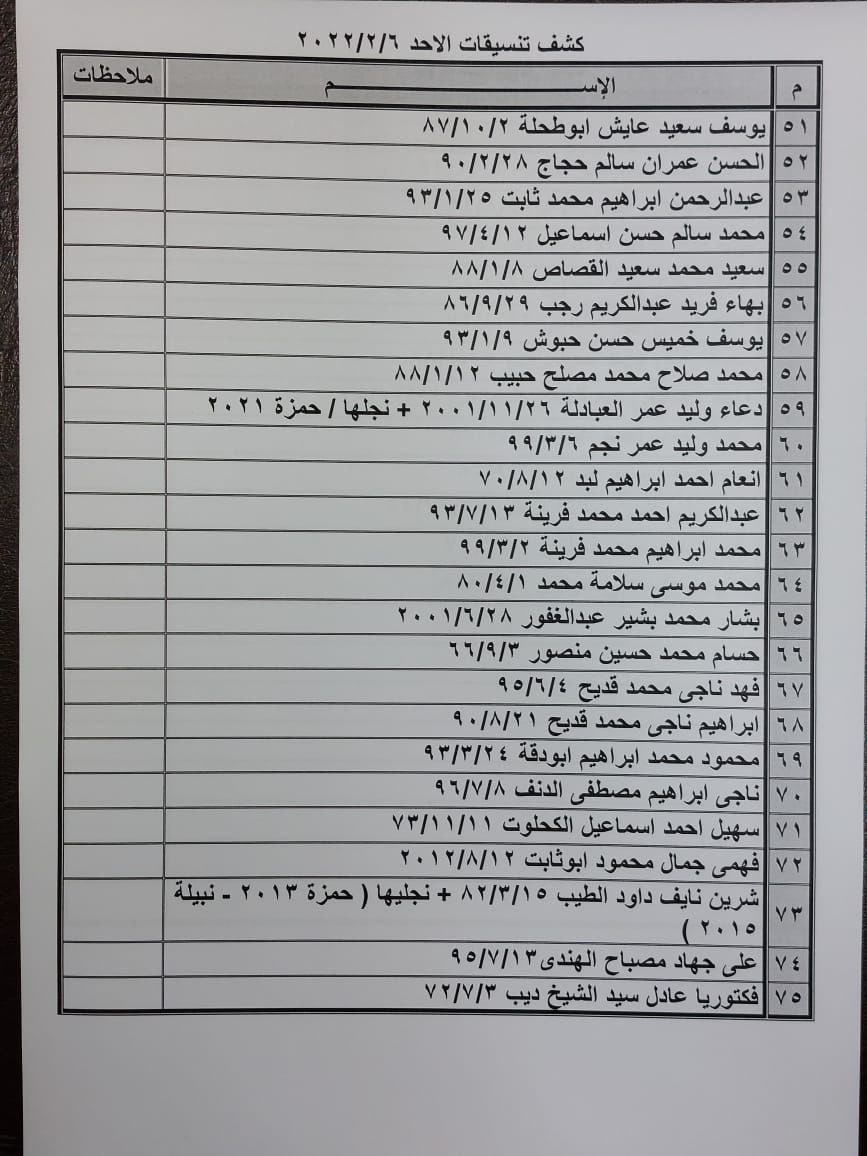 كشف تنسيقات الاحد ٢٠٢٢/٢/٦
م الإســـــــــــــــــــم ملاحظات
٥١ يوسف سعيد عايش ابوطحلة ٨٧/١٠/٢
٥٢ الحسن عمران سالم حجاج ٩٠/٢/٢٨
٥٣ عبدالرحمن ابراهيم محمد ثابت ٩٣/١/٢٥
٥٤ محمد سالم حسن اسماعيل ٩٧/٤/١٢
٥٥ سعيد محمد سعيد القصاص ٨٨/١/٨
٥٦ بهاء فريد عبدالكريم رجب ٨٦/٩/٢٩
٥٧ يوسف خميس حسن حبوش ٩٣/١/٩
٥٨ محمد صلاح محمد مصلح حبيب ٨٨/١/١٢
٥٩ دعاء وليد عمر العبادلة ٢٠٠١/١١/٢٦ + نجلها / حمزة ٢٠٢١
٦٠ محمد وليد عمر نجم ٩٩/٣/٦
٦١ انعام احمد ابراهيم لبد ٧٠/٨/١٢
٦٢ عبدالكريم احمد محمد فرينة ٩٣/٧/١٣
٦٣ محمد ابراهيم محمد فرينة ٩٩/٣/٢
٦٤ محمد موسى سلامة محمد ٨٠/٤/١
٦٥ بشار محمد بشير عبدالغفور ٢٠٠١/٦/٢٨
٦٦ حسام محمد حسين منصور ٦٦/٩/٣
٦٧ فهد ناجى محمد قديح ٩٥/٦/٤
٦٨ ابراهيم ناجى محمد قديح ٩٠/٨/٢١
٦٩ محمود محمد ابراهيم ابودقة ٩٣/٣/٢٤
٧٠ ناجى ابراهيم مصطفى الدنف ٩٦/٧/٨
٧١ سهيل احمد اسماعيل الكحلوت ٧٣/١١/١١
٧٢ فهمى جمال محمود ابوثابت ٢٠١٢/٨/١٢
٧٣ شرين نايف داود الطيب ٨٢/٣/١٥ + نجليها ( حمزة ٢٠١٣ - نبيلة
٢٠١٥ )
٧٤ على جهاد مصباح الهندى ٩٥/٧/١٣
٧٥ فكتوريا عادل سيد الشيخ ديب ٧٢/٧/٣